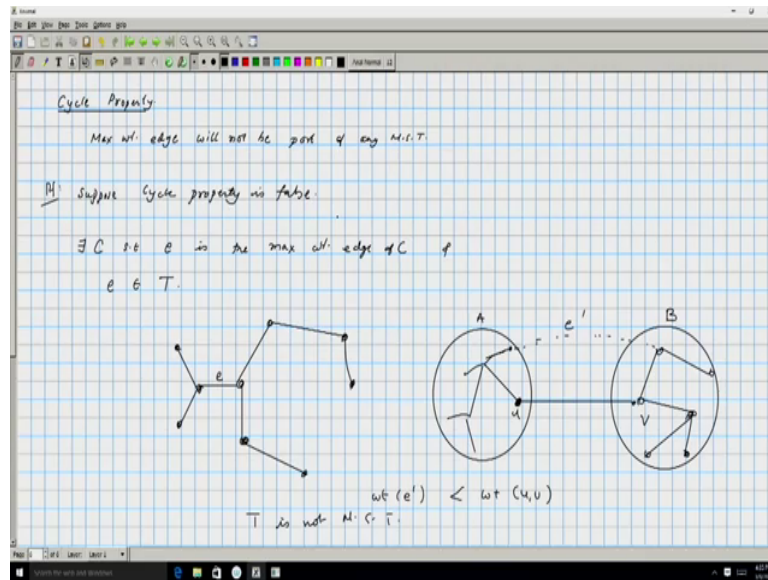 Journal
File Edit View Page Tools Options Help
Cycle Property
Max wt. edge will not be part of any M.S.T.
Pf: Suppose Cycle property is false.
∃ C s.t e is the max wt. edge of C &
e ∈ T.
e
A
e'
B
u
v
wt (e') < wt (u,v)
T is not M.S.T.
Page
Layer: Layer 1
Search the web and Windows